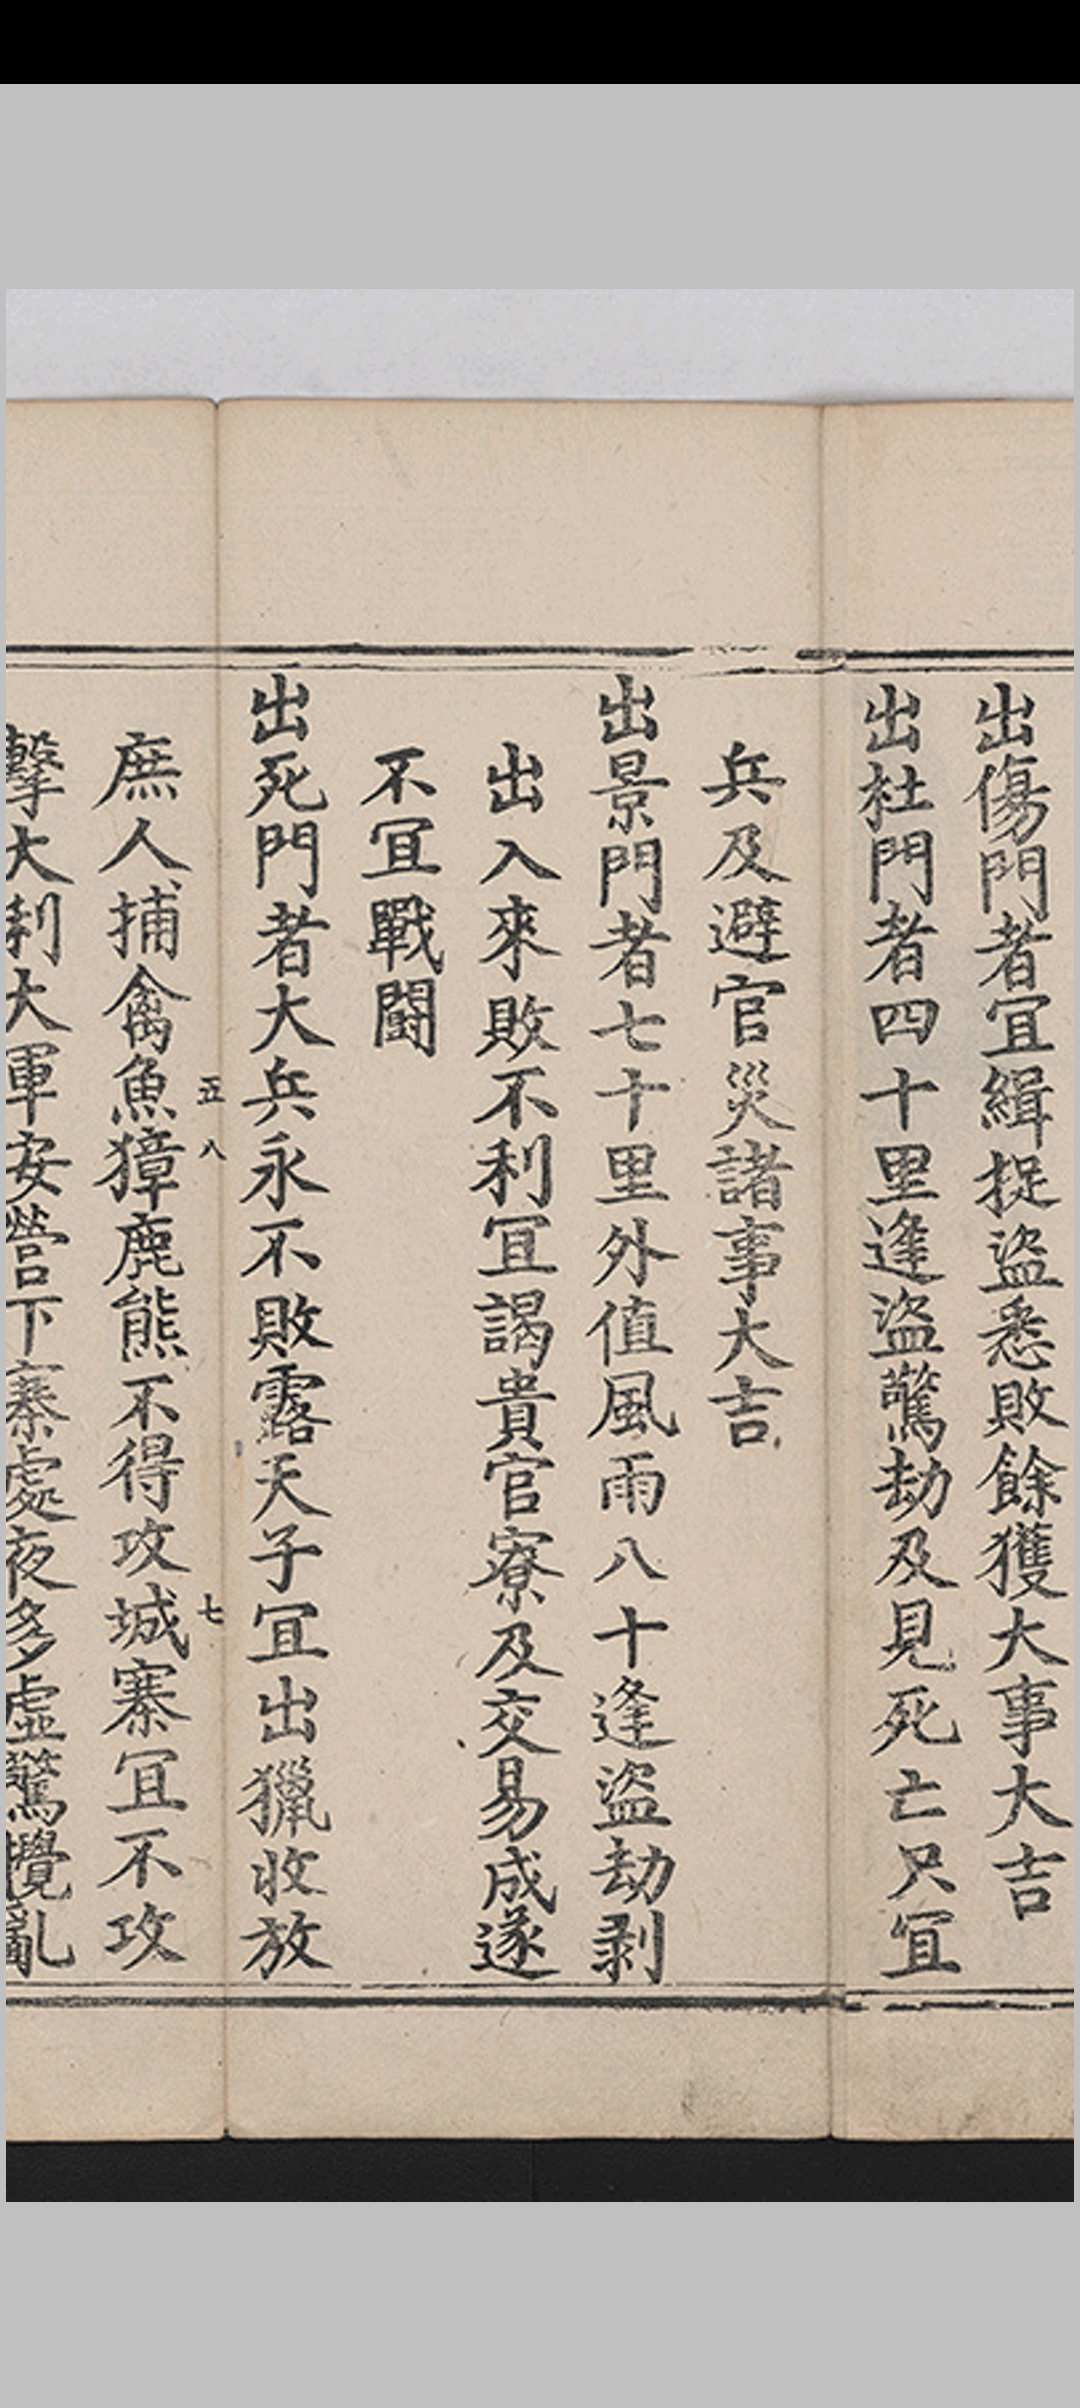 出傷門者冝緝捉盜悉敗餘獲大事大吉
出杜門者四十里逢盜驚劫及見死亡只冝
兵及避官災諸事大吉
出景門者七十里外值風雨八十逢盜劫剥
出入來敗不利冝謁貴官寮及交易成遂
不冝戰鬪
出死門者大兵永不敗露天子冝出獵收放
五八 七
庶人捕禽魚獐鹿熊不得攻城寨冝不攻
擊大利大軍安營下寨處夜多虛驚攪亂